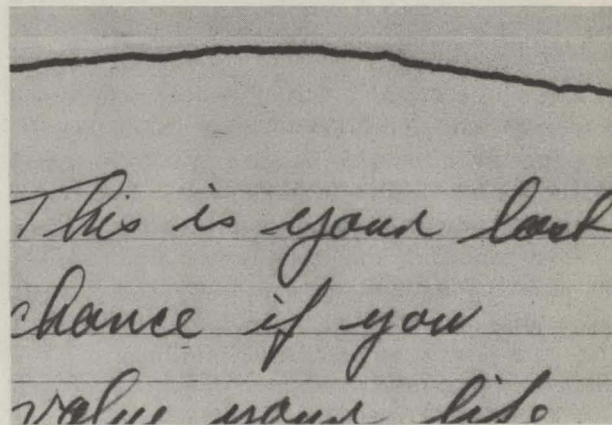 This is your last
chance if you
value your life